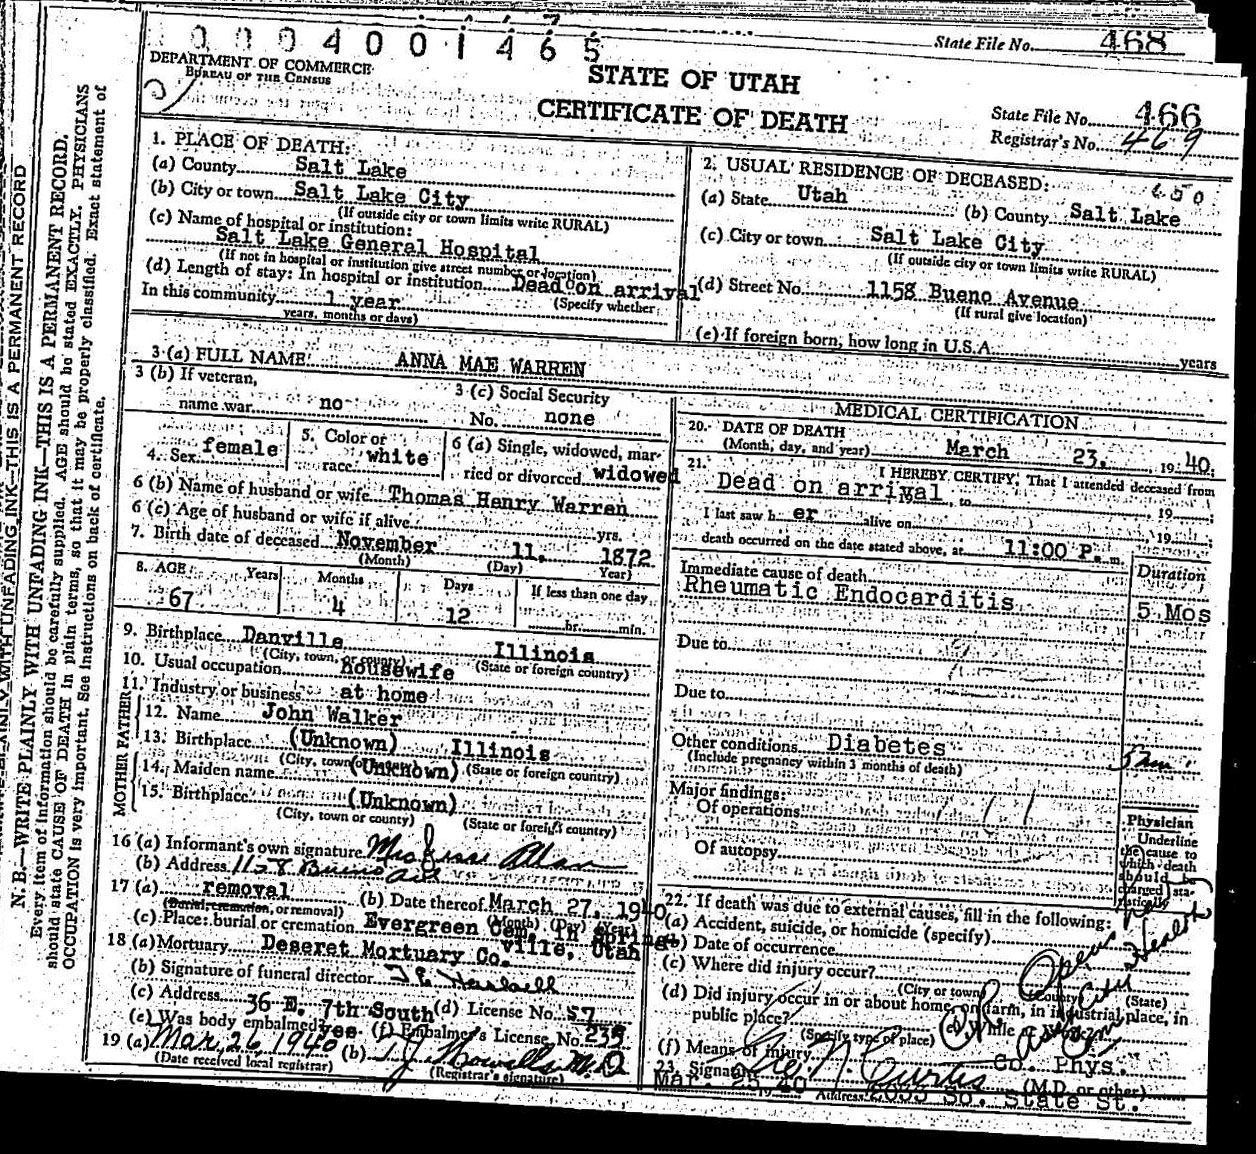 0004001465
State File No. 468
DEPARTMENT OF COMMERCE
BUREAU OF THE CENSUS
STATE OF UTAH
CERTIFICATE OF DEATH
State File No. 466
Registrar's No. 469
N. B.—WRITE PLAINLY WITH UNFADING INK—THIS IS A PERMANENT RECORD.
Every item of information should be carefully supplied. AGE should be stated EXACTLY. PHYSICIANS
should state CAUSE OF DEATH in plain terms, so that it may be properly classified. Exact statement of
OCCUPATION is very important. See instructions on back of certificate.
1. PLACE OF DEATH:
(a) County Salt Lake
(b) City or town Salt Lake City
(If outside city or town limits write RURAL)
(c) Name of hospital or institution:
Salt Lake General Hospital
(If not in hospital or institution give street number or location)
(d) Length of stay: In hospital or institution Dead on arrival
(Specify whether
In this community 1 year
years, months or days)
2. USUAL RESIDENCE OF DECEASED: 650
(a) State Utah (b) County Salt Lake
(c) City or town Salt Lake City
(If outside city or town limits write RURAL)
(d) Street No. 1158 Bueno Avenue
(If rural give location)
(e) If foreign born, how long in U.S.A. years
3 (a) FULL NAME ANNA MAE WARREN
3 (b) If veteran, name war no
3 (c) Social Security No. none
4. Sex female 5. Color or race white 6 (a) Single, widowed, married or divorced widowed
6 (b) Name of husband or wife Thomas Henry Warren
6 (c) Age of husband or wife if alive yrs.
7. Birth date of deceased November 11, 1872
(Month) (Day) Year)
8. AGE Years Months Days If less than one day
67 4 12 hr. min.
9. Birthplace Danville Illinois
(City, town, or county) (State or foreign country)
10. Usual occupation housewife
11. Industry or business at home
FATHER
12. Name John Walker
13. Birthplace (Unknown) Illinois
(City, town or county) (State or foreign country)
MOTHER
14. Maiden name (Unknown)
15. Birthplace (Unknown)
(City, town or county) (State or foreign country)
16 (a) Informant's own signature Mrs Jesse
(b) Address 1158 Bueno Ave
17 (a) removal (b) Date thereof March 27, 1940
(Burial, cremation, or removal) (Month) (Day) (Year)
(c) Place: burial or cremation Evergreen Cem. in Springville, Utah
18 (a) Mortuary Deseret Mortuary Co.
(b) Signature of funeral director
(c) Address 36 E. 7th South (d) License No. 57
(e) Was body embalmed? yes (f) Embalmer's License No. 239
19 (a) Mar. 26, 1940 (b) M.D.
(Date received local registrar) (Registrar's signature)
MEDICAL CERTIFICATION
20. DATE OF DEATH
(Month, day, and year) March 23, 1940.
21. I HEREBY CERTIFY, That I attended deceased from
Dead on arrival, to 19
I last saw her alive on 19
death occurred on the date stated above, at 11:00 P. m.
Immediate cause of death Duration
Rheumatic Endocarditis 5 Mos
Due to
Due to
Other conditions Diabetes
(Include pregnancy within 3 months of death)
Major findings:
Of operations
Of autopsy
Physician
Underline
the cause to
which death
should be
charged statistically
22. If death was due to external causes, fill in the following:
(a) Accident, suicide, or homicide (specify)
(b) Date of occurrence
(c) Where did injury occur?
(City or town) (County) (State)
(d) Did injury occur in or about home, on farm, in industrial place, in
public place?
(Specify type of place) (e) While at work?
(f) Means of injury
23. Signature N. Curtis Co. Phys.
(M.D. or other)
Mar. 25, 40 Address 2033 So. State St.